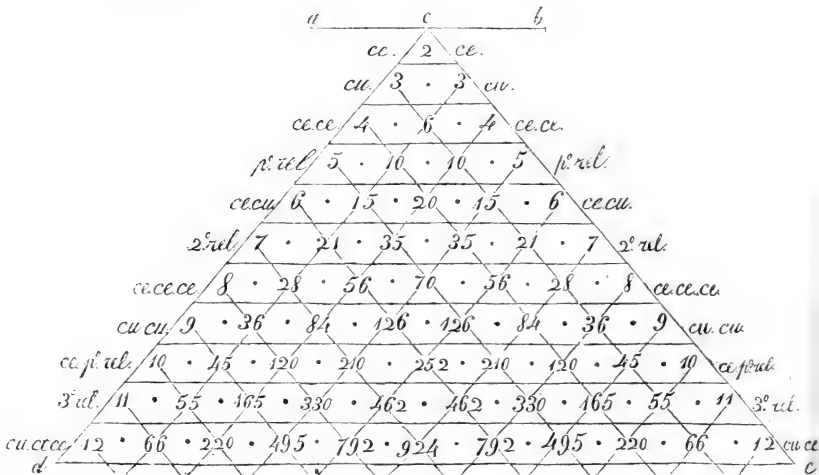 a c b
ce. 2 ce.
cu. 3 · 3 cu.
ce.ce 4 · 6 · 4 ce.ce.
p°. rel. 5 · 10 · 10 · 5 p°. rel.
ce.cu. 6 · 15 · 20 · 15 · 6 ce.cu.
2° rel 7 · 21 · 35 · 35 · 21 · 7 2° rel.
ce.ce.ce. 8 · 28 · 56 · 70 · 56 · 28 · 8 ce.ce.ce
cu cu. 9 · 36 · 84 · 126 · 126 · 84 · 36 · 9 cu. cu.
ce.p°. rel. 10 · 45 · 120 · 210 · 252 · 210 · 120 · 45 · 10 ce.p°rel.
3° rel. 11 · 55 · 165 · 330 · 462 · 462 · 330 · 165 · 55 · 11 3° rel.
cu.ce ce 12 · 66 · 220 · 495 · 792 · 924 · 792 · 495 · 220 · 66 · 12 cu ce
d e